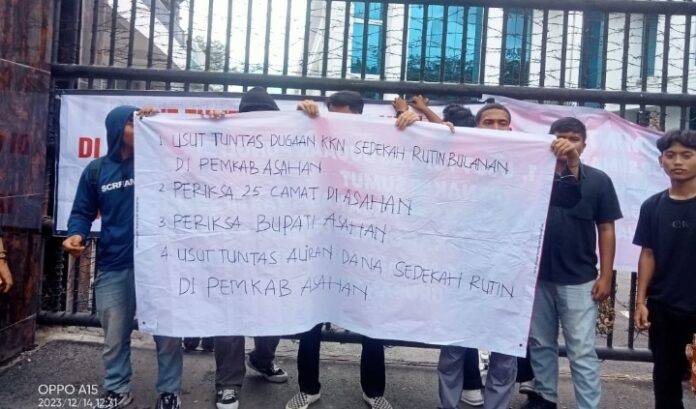 1. USUT TUNTAS DUGAAN KKN SEDEKAH RUTIN BULANAN
DI PEMKAB ASAHAN
2. PERIKSA 25 CAMAT DI ASAHAN
3. PERIKSA BUPATI ASAHAN
4. USUT TUNTAS ALIRAN DANA SEDEKAH RUTIN
DI PEMKAB ASAHAN
DI
OPPO A15
2023/12/14 12:31